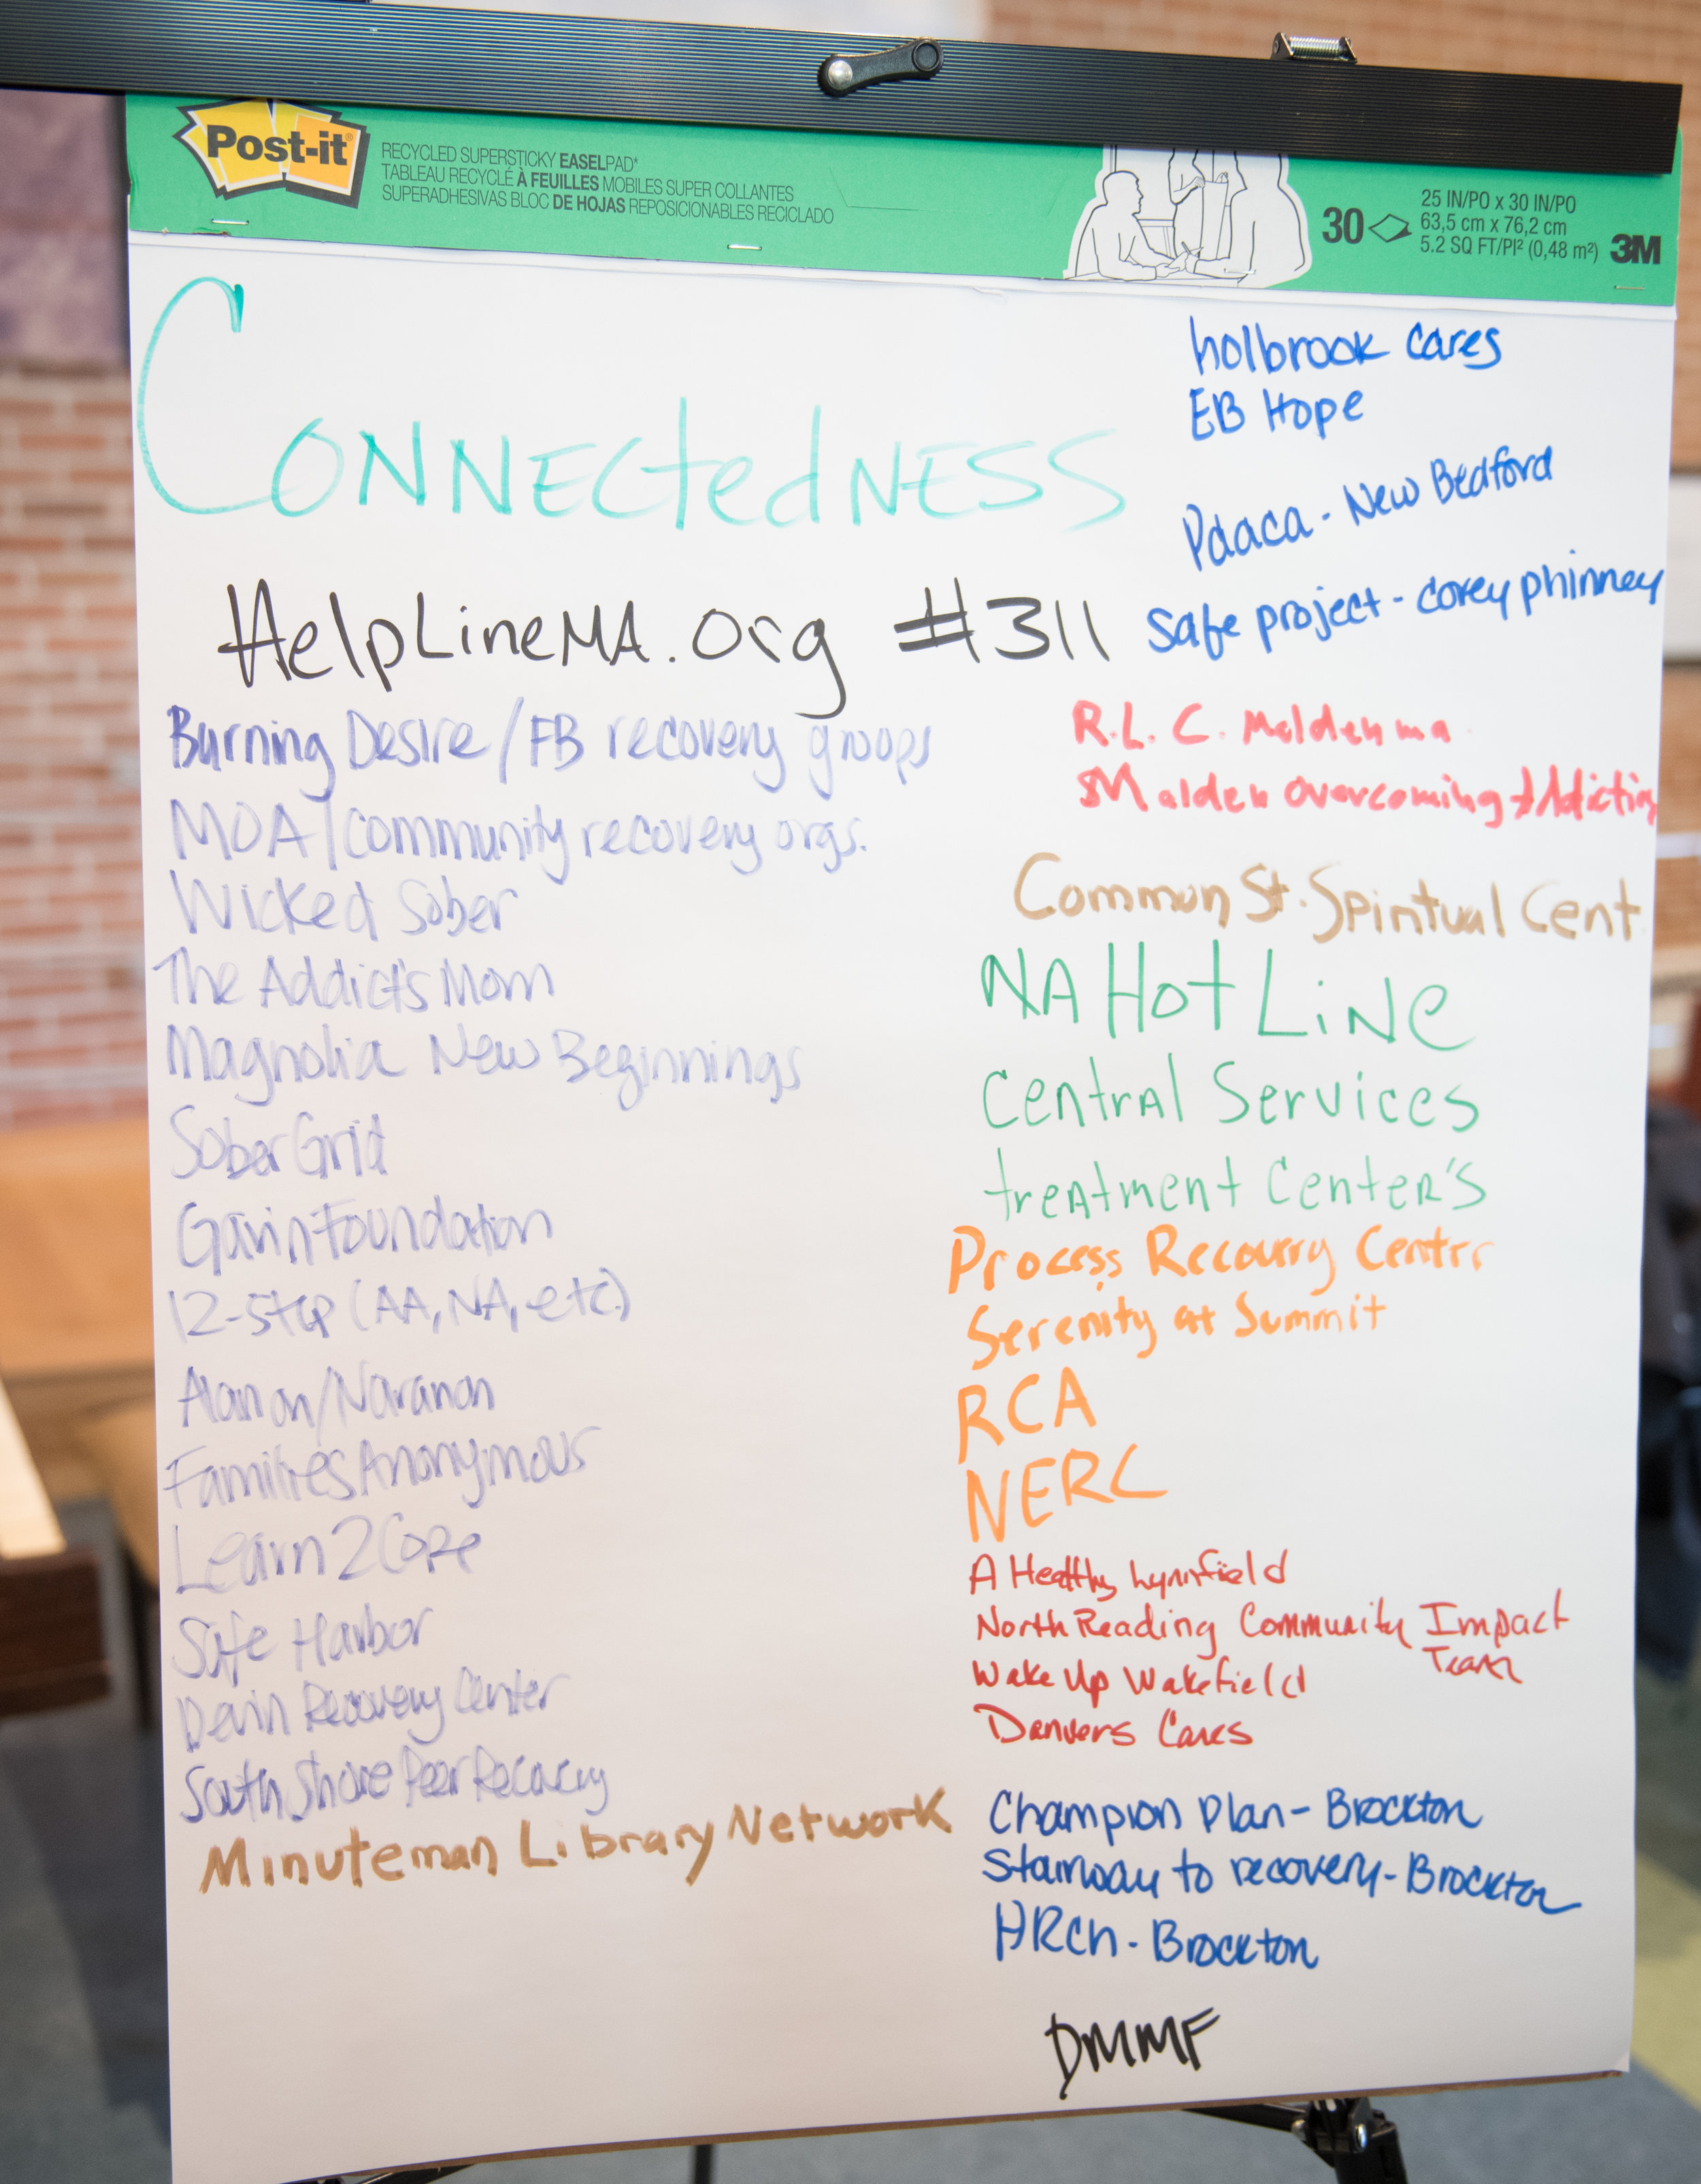 Post-it®
RECYCLED SUPERSTICKY EASELPAD*
TABLEAU RECYCLÉ À FEUILLES MOBILES SUPER COLLANTES
SUPERADHESIVAS BLOC DE HOJAS REPOSICIONABLES RECICLADO
30
25 IN/PO x 30 IN/PO
63,5 cm x 76,2 cm
5.2 SQ FT/PI² (0,48 m²)
3M
CONNECtedNESS
HelpLineMA.org #311
Burning Desire/FB recovery groups
MOA/community recovery orgs.
Wicked Sober
The Addict's Mom
Magnolia New Beginnings
Sober Grid
Gavin Foundation
12-step (AA, NA, etc.)
Alanon/Naranon
Families Anonymous
Learn2Cope
Safe Harbor
Devin Recovery Center
South Shore Peer Recovery
Minuteman Library Network
holbrook cares
EB Hope
Paaca - New Bedford
Safe project - corey phinney
R.L.C. Malden ma
Malden Overcoming Addiction
Common St. Spiritual Cent
NA Hot LiNe
Central Services
treatment Center's
Process Recovery Center
Serenity at Summit
RCA
NERC
A Healthy Lynnfield
North Reading Community Impact
Team
Wake Up Wakefield
Danvers Cares
Champion Plan - Brockton
Stairway to recovery - Brockton
HRCh - Brockton
DMMF